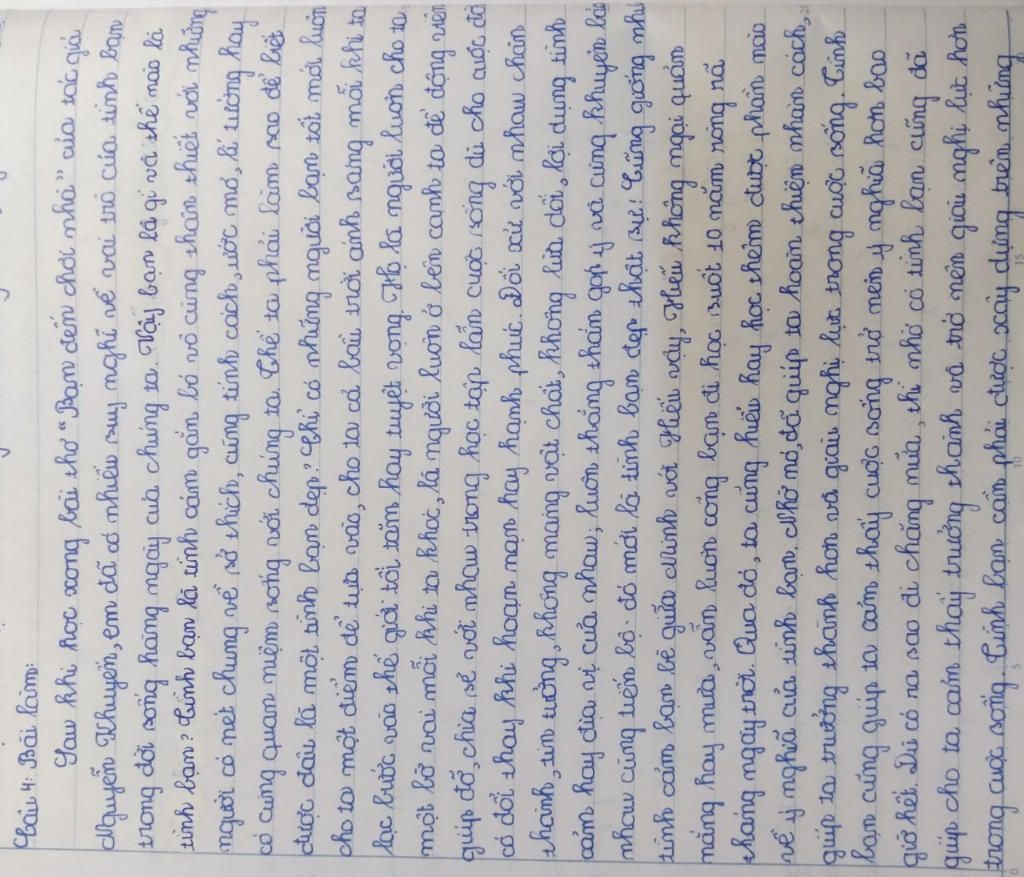 Câu 4: Bài làm:
Sau khi học xong bài thơ "Bạn đến chơi nhà" của tác giả
Nguyễn Khuyến, em đã có nhiều suy nghĩ về vai trò của tình bạn
trong đời sống hàng ngày của chúng ta. Vậy bạn là gì và thế nào là
tình bạn? Tình bạn là tình cảm gắn bó vô cùng thân thiết với những
người có nét chung về sở thích, cùng tính cách, ước mơ, lí tưởng hay
có cùng quan niệm sống với chúng ta. Thế ta phải làm sao để biết
được đâu là một tình bạn đẹp? Chỉ có những người bạn tốt mới luôn
cho ta một điểm để tựa vào, cho ta cả bầu trời ánh sang mỗi khi ta
lạc bước vào thế giới tối tăm hay tuyệt vọng. Họ là người luôn cho ta
một bờ vai mỗi khi ta khóc, là người luôn ở bên cạnh ta để động viên
giúp đỡ, chia sẻ với nhau trong học tập lẫn cuộc sống dù cho cuộc đời
có đổi thay khi hoạn nạn hay hạnh phúc. Đối xử với nhau chân
thành, tin tưởng, không mang vật chất, không lừa dối, lợi dụng tình
cảm hay địa vị của nhau; luôn thẳng thắn góp ý và cùng khuyên bảo
nhau cùng tiến bộ. đó mới là tình bạn đẹp thật sự! Cũng giống như
tình cảm bạn bè giữa Minh và Hiếu vậy. Hiếu không ngại quản
nắng hay mưa, vẫn luôn cõng bạn đi học suốt 10 năm ròng rã
tháng ngày trời. Qua đó, ta cũng hiểu hay học thêm được phần nào
về ý nghĩa của tình bạn. Nhờ nó, đã giúp ta hoàn thiện nhân cách,
giúp ta trưởng thành hơn và giàu nghị lực trong cuộc sống. Tình
bạn cũng giúp ta cảm thấy cuộc sống trở nên ý nghĩa hơn bao
giờ hết. Dù có ra sao đi chăng nữa, thì nhờ có tình bạn cũng đã
giúp cho ta cảm thấy trưởng thành và trở nên giàu nghị lực hơn
trong cuộc sống. Tình bạn cần phải được xây dựng trên những